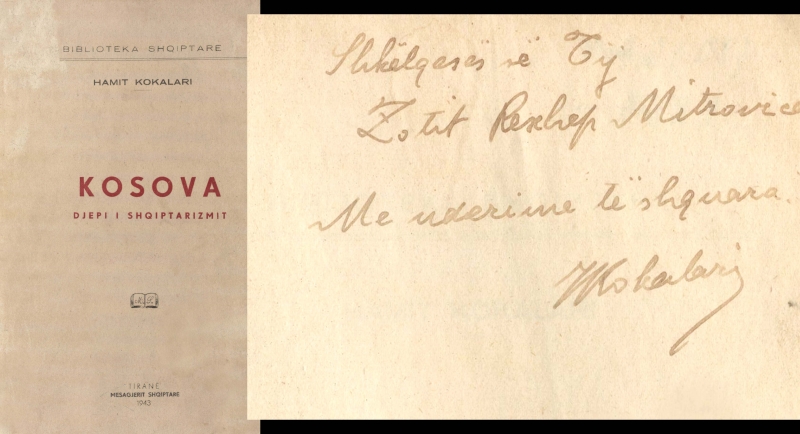 BIBLIOTEKA SHQIPTARE
HAMIT KOKALARI
KOSOVA
DJEPI I SHQIPTARIZMIT
TIRANË
MESAGJERIT SHQIPTARE
1943
Shkëlqesës së Tij
Zotit Rexhep Mitrovica
Me nderime të shquara.
HKokalari